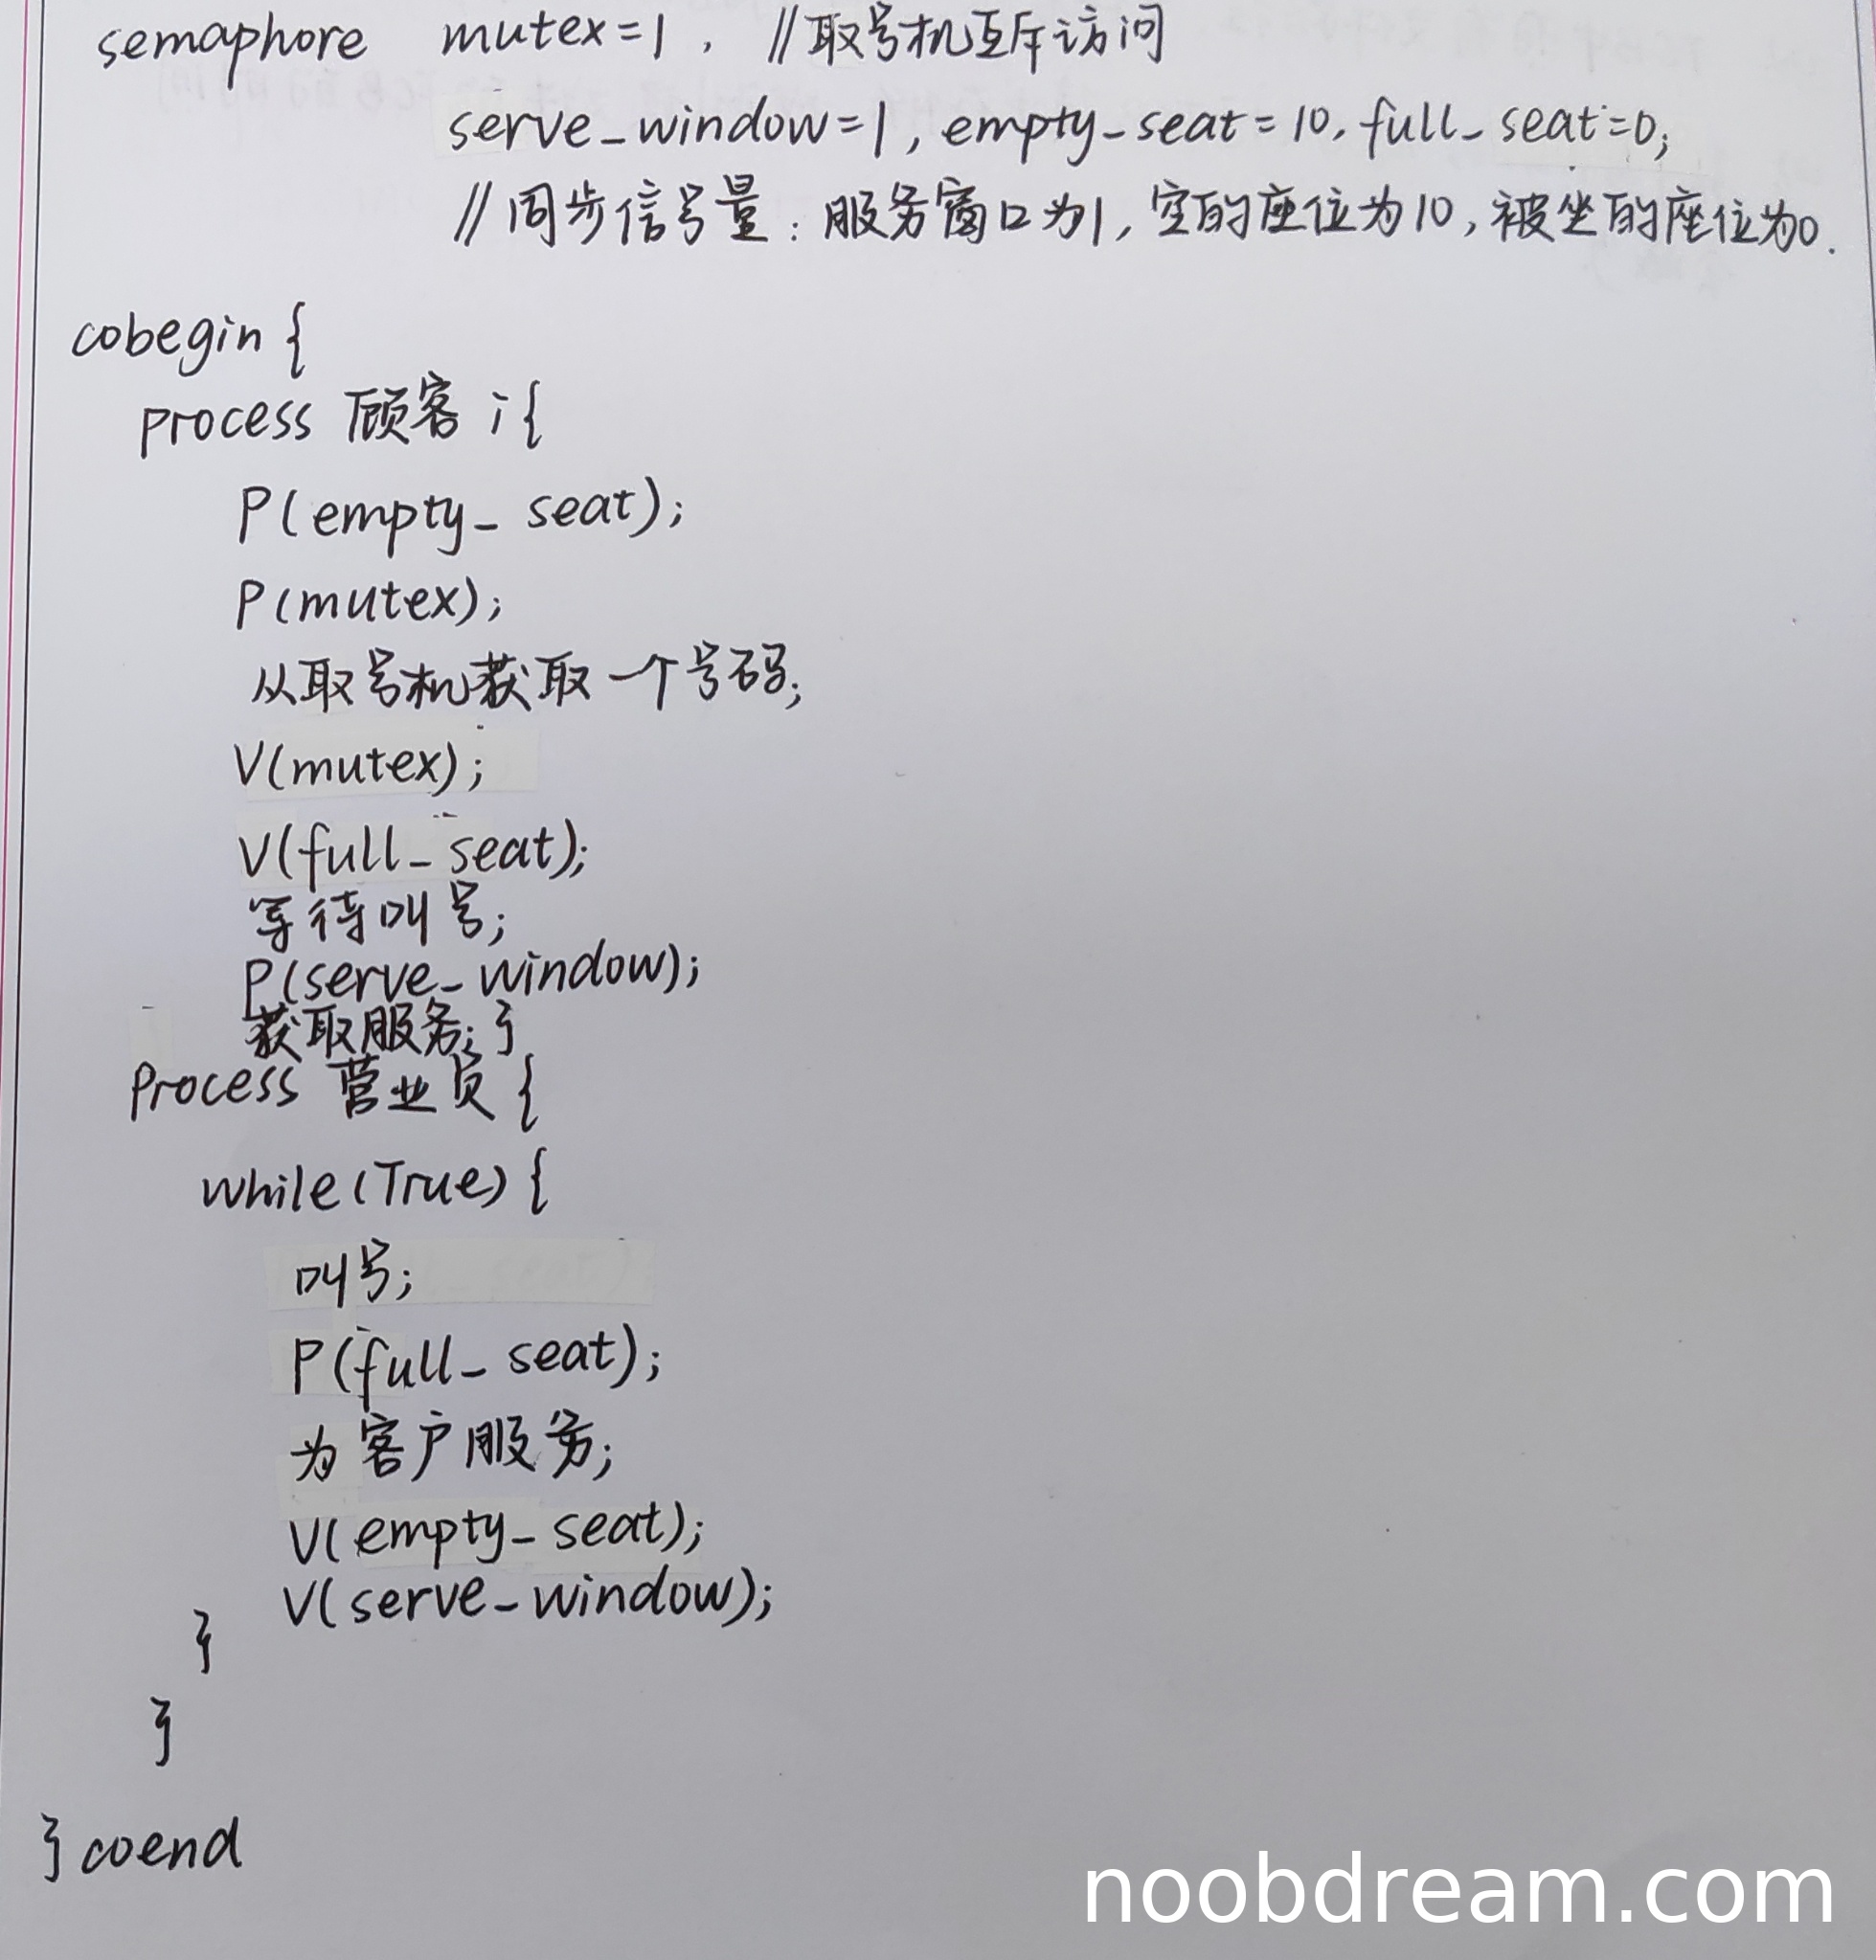 semaphore mutex=1, //取号机互斥访问
serve_window=1, empty_seat=10, full_seat=0;
//同步信号量:服务窗口为1,空的座位为10,被坐的座位为0.
cobegin{
process 顾客 i{
P(empty_seat);
P(mutex);
从取号机获取一个号码;
V(mutex);
V(full_seat);
等待叫号;
P(serve_window);
获取服务;}
Process 营业员{
while(True){
叫号;
P(full_seat);
为客户服务;
V(empty_seat);
V(serve_window);
}
}
}coend
noobdream.com